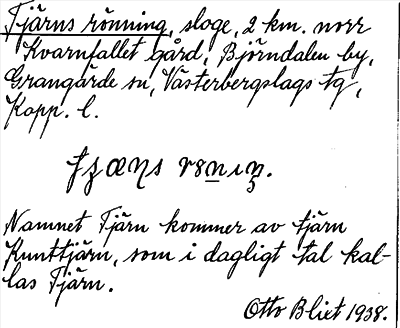 Tjärns rönning, sloge, 2 km. norr
Kvarnfallet gård, Björndalen by,
Grangärde sn, Västerbergslags tg,
Kopp. l.
Namnet Tjärn kommer av tjärn
Kunttjärn, som i dagligt tal kal-
las Tjärn.
Otto Blixt 1938.